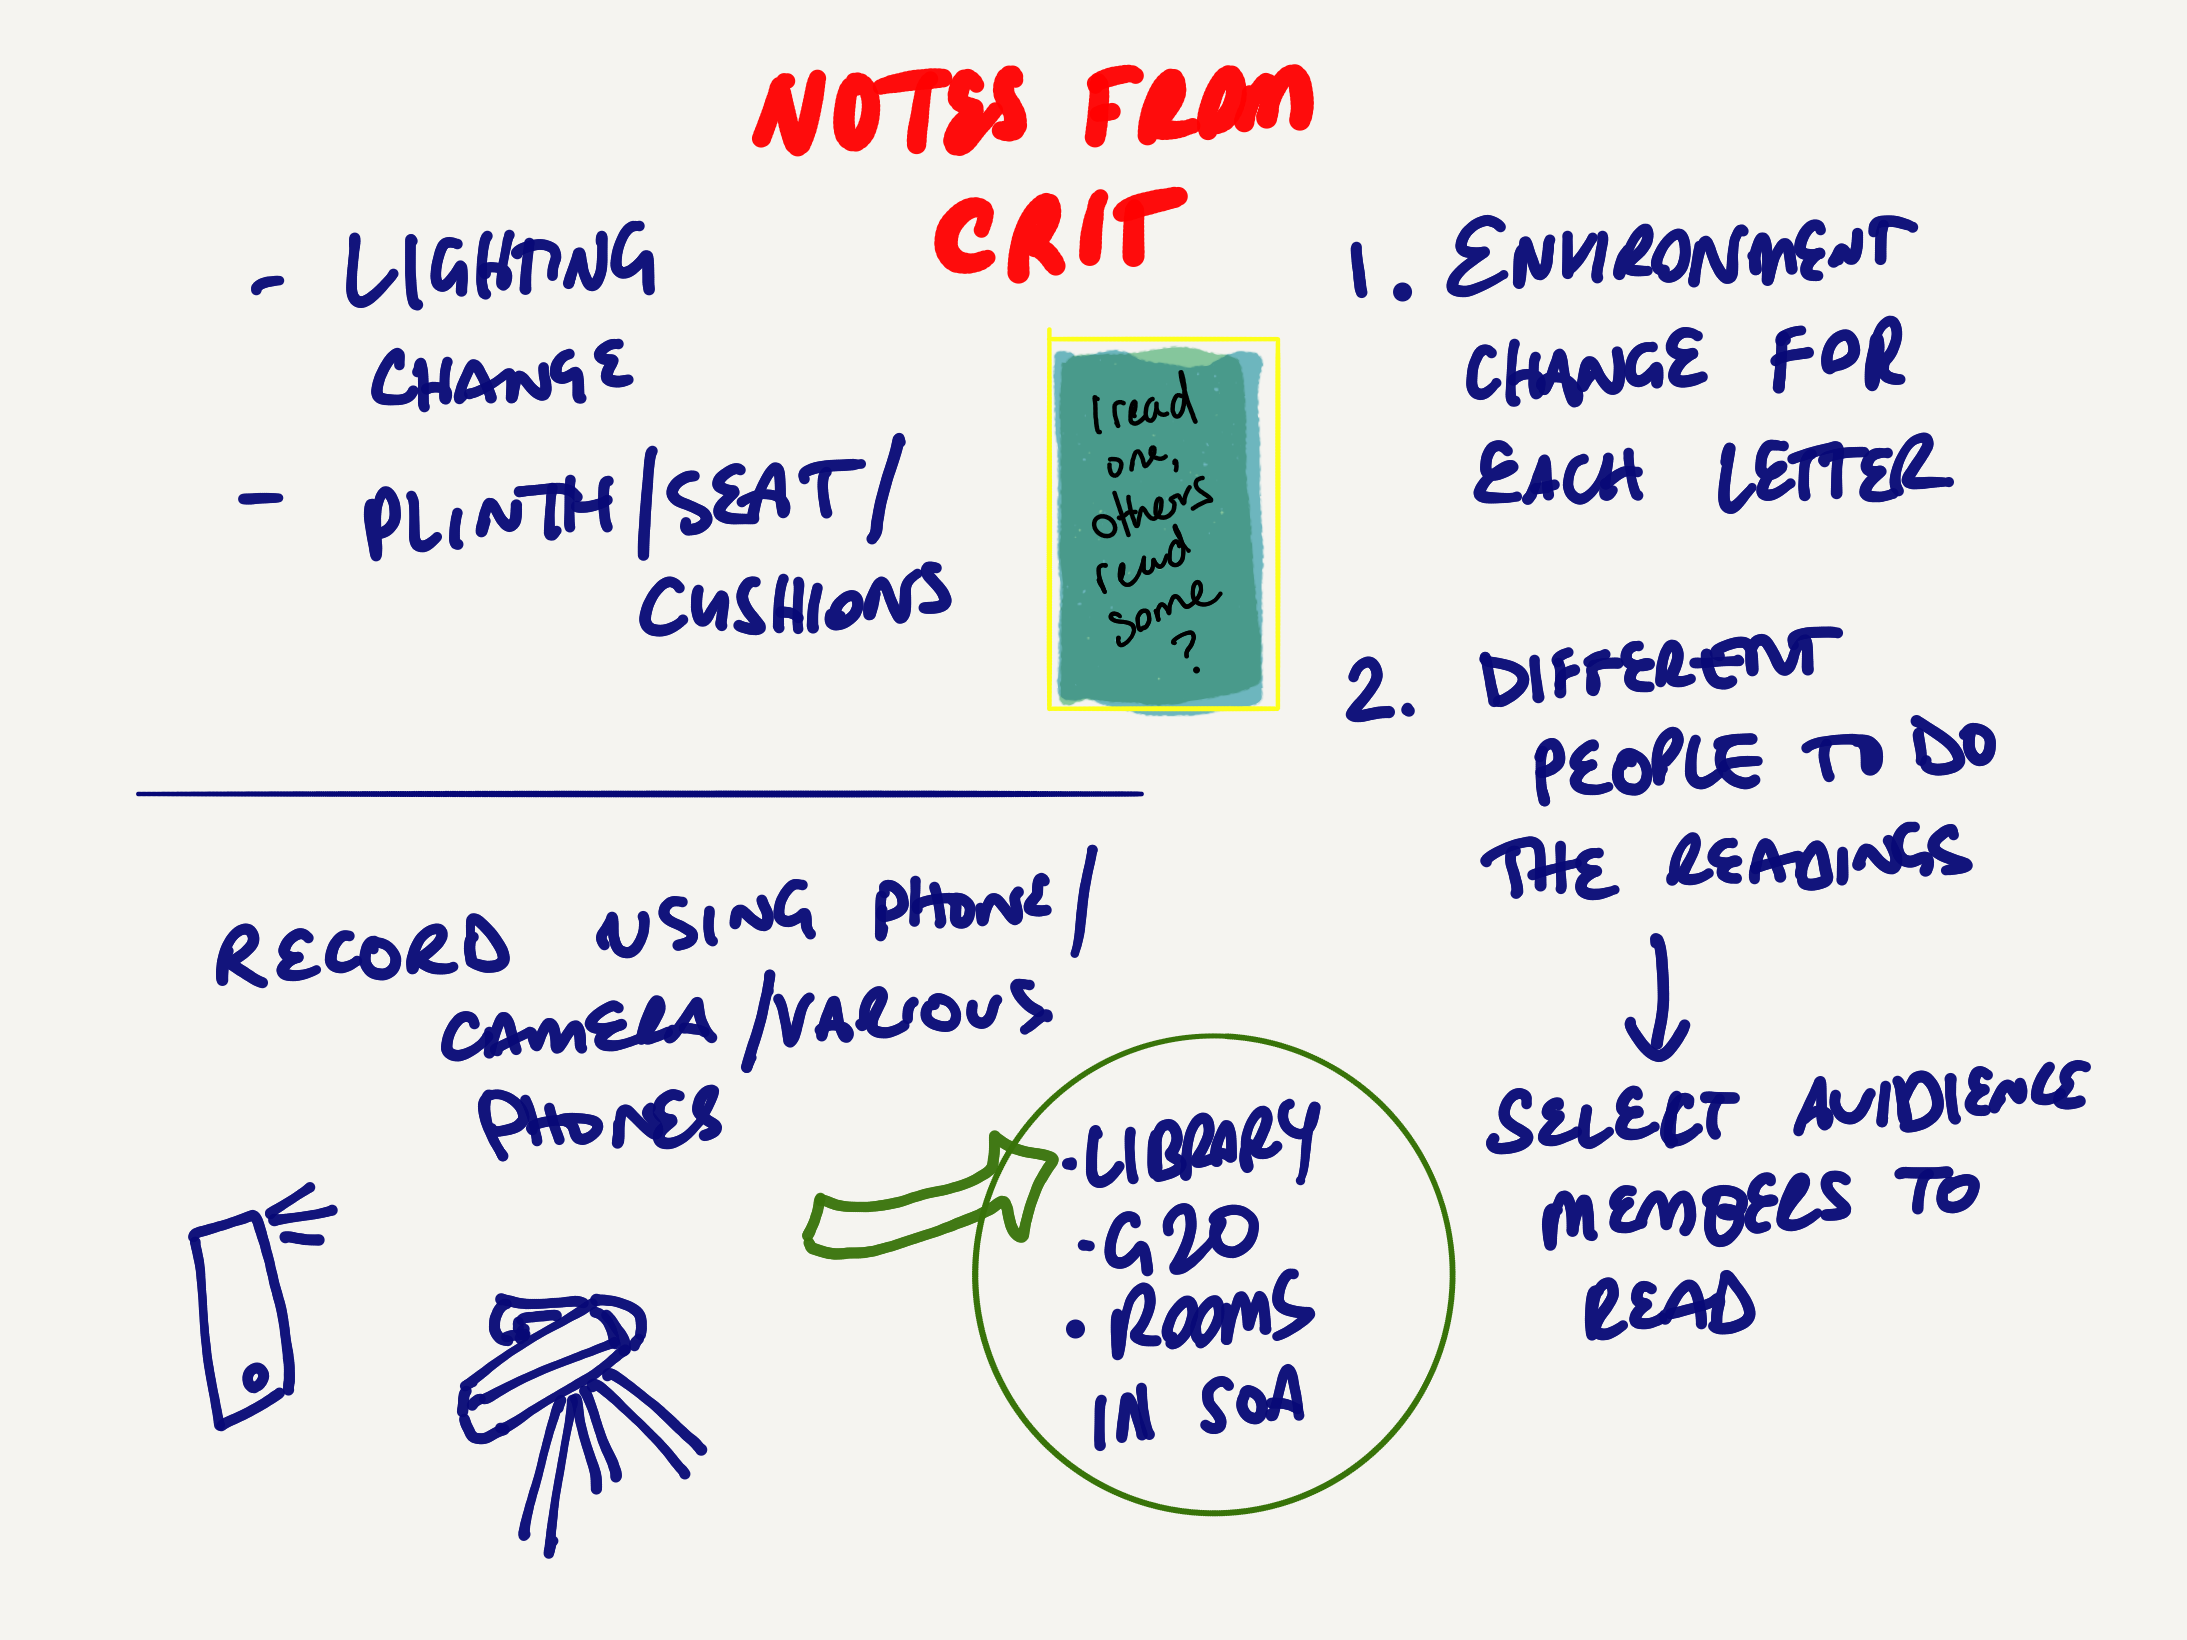 NOTES FROM
CRIT
- LIGHTING
CHANGE
- PLINTH/SEAT/
CUSHIONS
I read
one,
others
read
some
?
1. ENVIRONMENT
CHANGE FOR
EACH LETTER
2. DIFFERENT
PEOPLE TO DO
THE READINGS
SELECT AUIDIENCE
MEMBERS TO
READ
RECORD USING PHONE/
CAMERA/VARIOUS
PHONES
- LIBRARY
- G20
• ROOMS
IN SOA